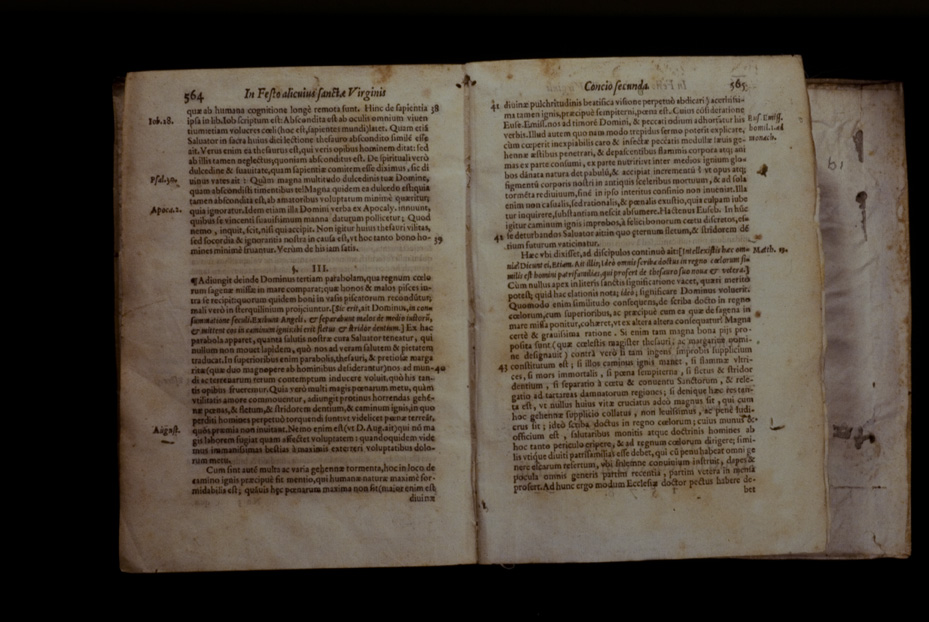 564 In Festo alicuius sanctæ Virginis
quæ ab humana cognitione longè remota sunt. Hinc de sapientia 38
Iob. 28. ipsa in lib. Iob scriptum est: Abscondita est ab oculis omnium viuen
tium etiam volucres cœli (hoc est, sapientes mundi) latet. Quam etiā
Saluator in sacra huius diei lectione thesauro abscondito simile esse
ait. Verus enim ea thesaurus est, qui veris opibus hominem ditat: sed
ab illis tamen neglectus, quoniam absconditus est. De spirituali verò
dulcedine & suauitate, quam sapientiæ comitem esse diximus, sic di
Psal. 30. uinus vates ait: Quàm magna multitudo dulcedinis tuæ Domine,
quam abscondisti timentibus te! Magna quidem ea dulcedo est, quia
tamen abscondita est, ab amatoribus voluptatum minimè quæritur,
Apoca. 2. quia ignoratur. Idem etiam illa Domini verba ex Apocaly. innuunt,
quibus se vincenti suauissimum manna daturum pollicetur; Quod
nemo, inquit, scit, nisi qui accipit. Non igitur huius thesauri vilitas,
sed socordia & ignorantia nostra in causa est, vt hoc tanto bono ho- 39
mines minimè fruantur. Verùm de his iam satis.
§. III.
¶ Adiungit deinde Dominus tertiam parabolam, qua regnum cœlo
rum sagenæ missæ in mare comparat; quæ bonos & malos pisces in-
tra se recipit: quorum quidem boni in vasis piscatorum reconduntur,
mali verò in sterquilinium proijciuntur. [Sic erit, ait Dominus, in con
summatione seculi. Exibunt Angeli, & separabunt malos de medio iustorū,
& mittent eos in caminum ignis: ibi erit fletus & stridor dentium.] Ex hac
parabola apparet, quanta salutis nostræ cura Saluator teneatur, qui
nullum non mouet lapidem, quò nos ad veram salutem & pietatem
traducat. In superioribus enim parabolis, thesauri, & pretiosæ marga
ritæ (quæ duo magnopere ab hominibus desiderantur) nos ad mun- 40
di ac terrenarum rerum contemptum inducere voluit, quò his tan-
tis opibus frueremur. Quia verò multi magis pœnarum metu, quàm
vtilitatis amore commouentur, adiungit protinus horrendas gehē-
næ pœnas, & fletum, & stridorem dentium, & caminum ignis, in quo
perditi homines perpetuò torquendi sunt: vt videlicet pœnæ terreāt,
August. quos præmia non inuitant. Nemo enim est (vt D. Aug. ait) qui nō ma
gis laborem fugiat quam affectet voluptatem: quandoquidem vide
mus immanissimas bestias à maximis exterreri voluptatibus dolo-
rum metu.
Cum sint autē multa ac varia gehennæ tormenta, hoc in loco de
camino ignis præcipuè fit mentio, qui humanæ naturæ maximè for-
midabilis est; quāuis hęc pœnarum maxima non sit (maior enim est
diuinæ
Concio secunda. 565
41 diuinæ pulchritudinis beatifica visione perpetuò abdicari) acerbissi-
ma tamen ignis, præcipuè sempiterni, pœna est. Cuius cōsideratione
Eus. Emiss. homil. 1. ad monach. Euse. Emiss. nos ad timorē Domini, & peccati odium adhortatur his
verbis. Illud autem quo nam modo trepidus sermo poterit explicare,
cùm cœperit inexpiabilis caro & infectæ peccatis medullæ sæuis ge-
hennæ æstibus penetrari, & depascentibus flammis corpora atq; ani
mas ex parte consumi, ex parte nutriri: vt inter medios ignium glo-
bos dānata natura det pabulū, & accipiat incrementū? vt opus atq;
figmentū corporis nostri in antiquis sceleribus mortuum, & ad sola
tormēta rediuiuum, sine in ipso interitus confinio non inueniat. Illa
enim non casualis, sed rationalis, & pœnalis exustio, quia culpam iube
tur inquirere, substantiam nescit absumere. Hactenus Euseb. In hūc
igitur caminum ignis improbos, à felici bonorum cœtu discretos, es-
42 se deturbandos Saluator ait: in quo æternum fletum, & stridorem dē
tium futurum vaticinatur.
Matth. 13. Hæc vbi dixisset, ad discipulos continuò ait: [Intellexistis hæc om-
nia? Dicunt ei, Etiam. Ait illis, Ideò omnis scriba doctus in regno cœlorum si
milis est homini patrifamilias, qui profert de thesauro suo noua & vetera.]
Cum nullus apex in literis sanctis significatione vacet, quæri meritò
potest, quid hæc elationis nota; ideò; significare Dominus voluerit:
Quomodo enim similitudo consequens, de scriba docto in regno
cœlorum, cum superioribus, ac præcipuè cum ea quæ de sagena in
mare missa ponitur, cohæret, vt ex altera altera consequatur? Magna
certè & grauissima ratione. Si enim tam magna bona pijs pro-
posita sunt (quæ cœlestis magister thesauri, ac margaritæ nomi-
ne designauit) contrà verò si tam ingens improbis supplicium
43 constitutum est; si illos caminus ignis manet, si flammæ vltri-
ces, si mors immortalis, si pœna sempiterna, si fletus & stridor
dentium, si separatio à cœtu & conuentu Sanctorum, & rele-
gatio ad tartareas damnatorum regiones; si denique hæc res tan-
ta est, vt nullus huius vitæ cruciatus adeò magnus sit, qui cum
hoc gehennæ supplicio collatus, non leuissimus, ac penè ludi-
crus sit; ideò scriba doctus in regno cœlorum; cuius munus &
officium est, salutaribus monitis atque doctrinis homines ab
hoc tanto periculo eripere, & ad regnum cœlorum dirigere; simi-
lis vtique diuiti patrisfamilias esse debet, qui cū penu habeat omni ge
nere escarum refertum, vbi solemne conuiuium instruit, dapes &
pocula omnis generis partim recentia, partim vetera in mensa
profert. Ad hunc ergo modum Ecclesiæ doctor pectus habere de-
bet